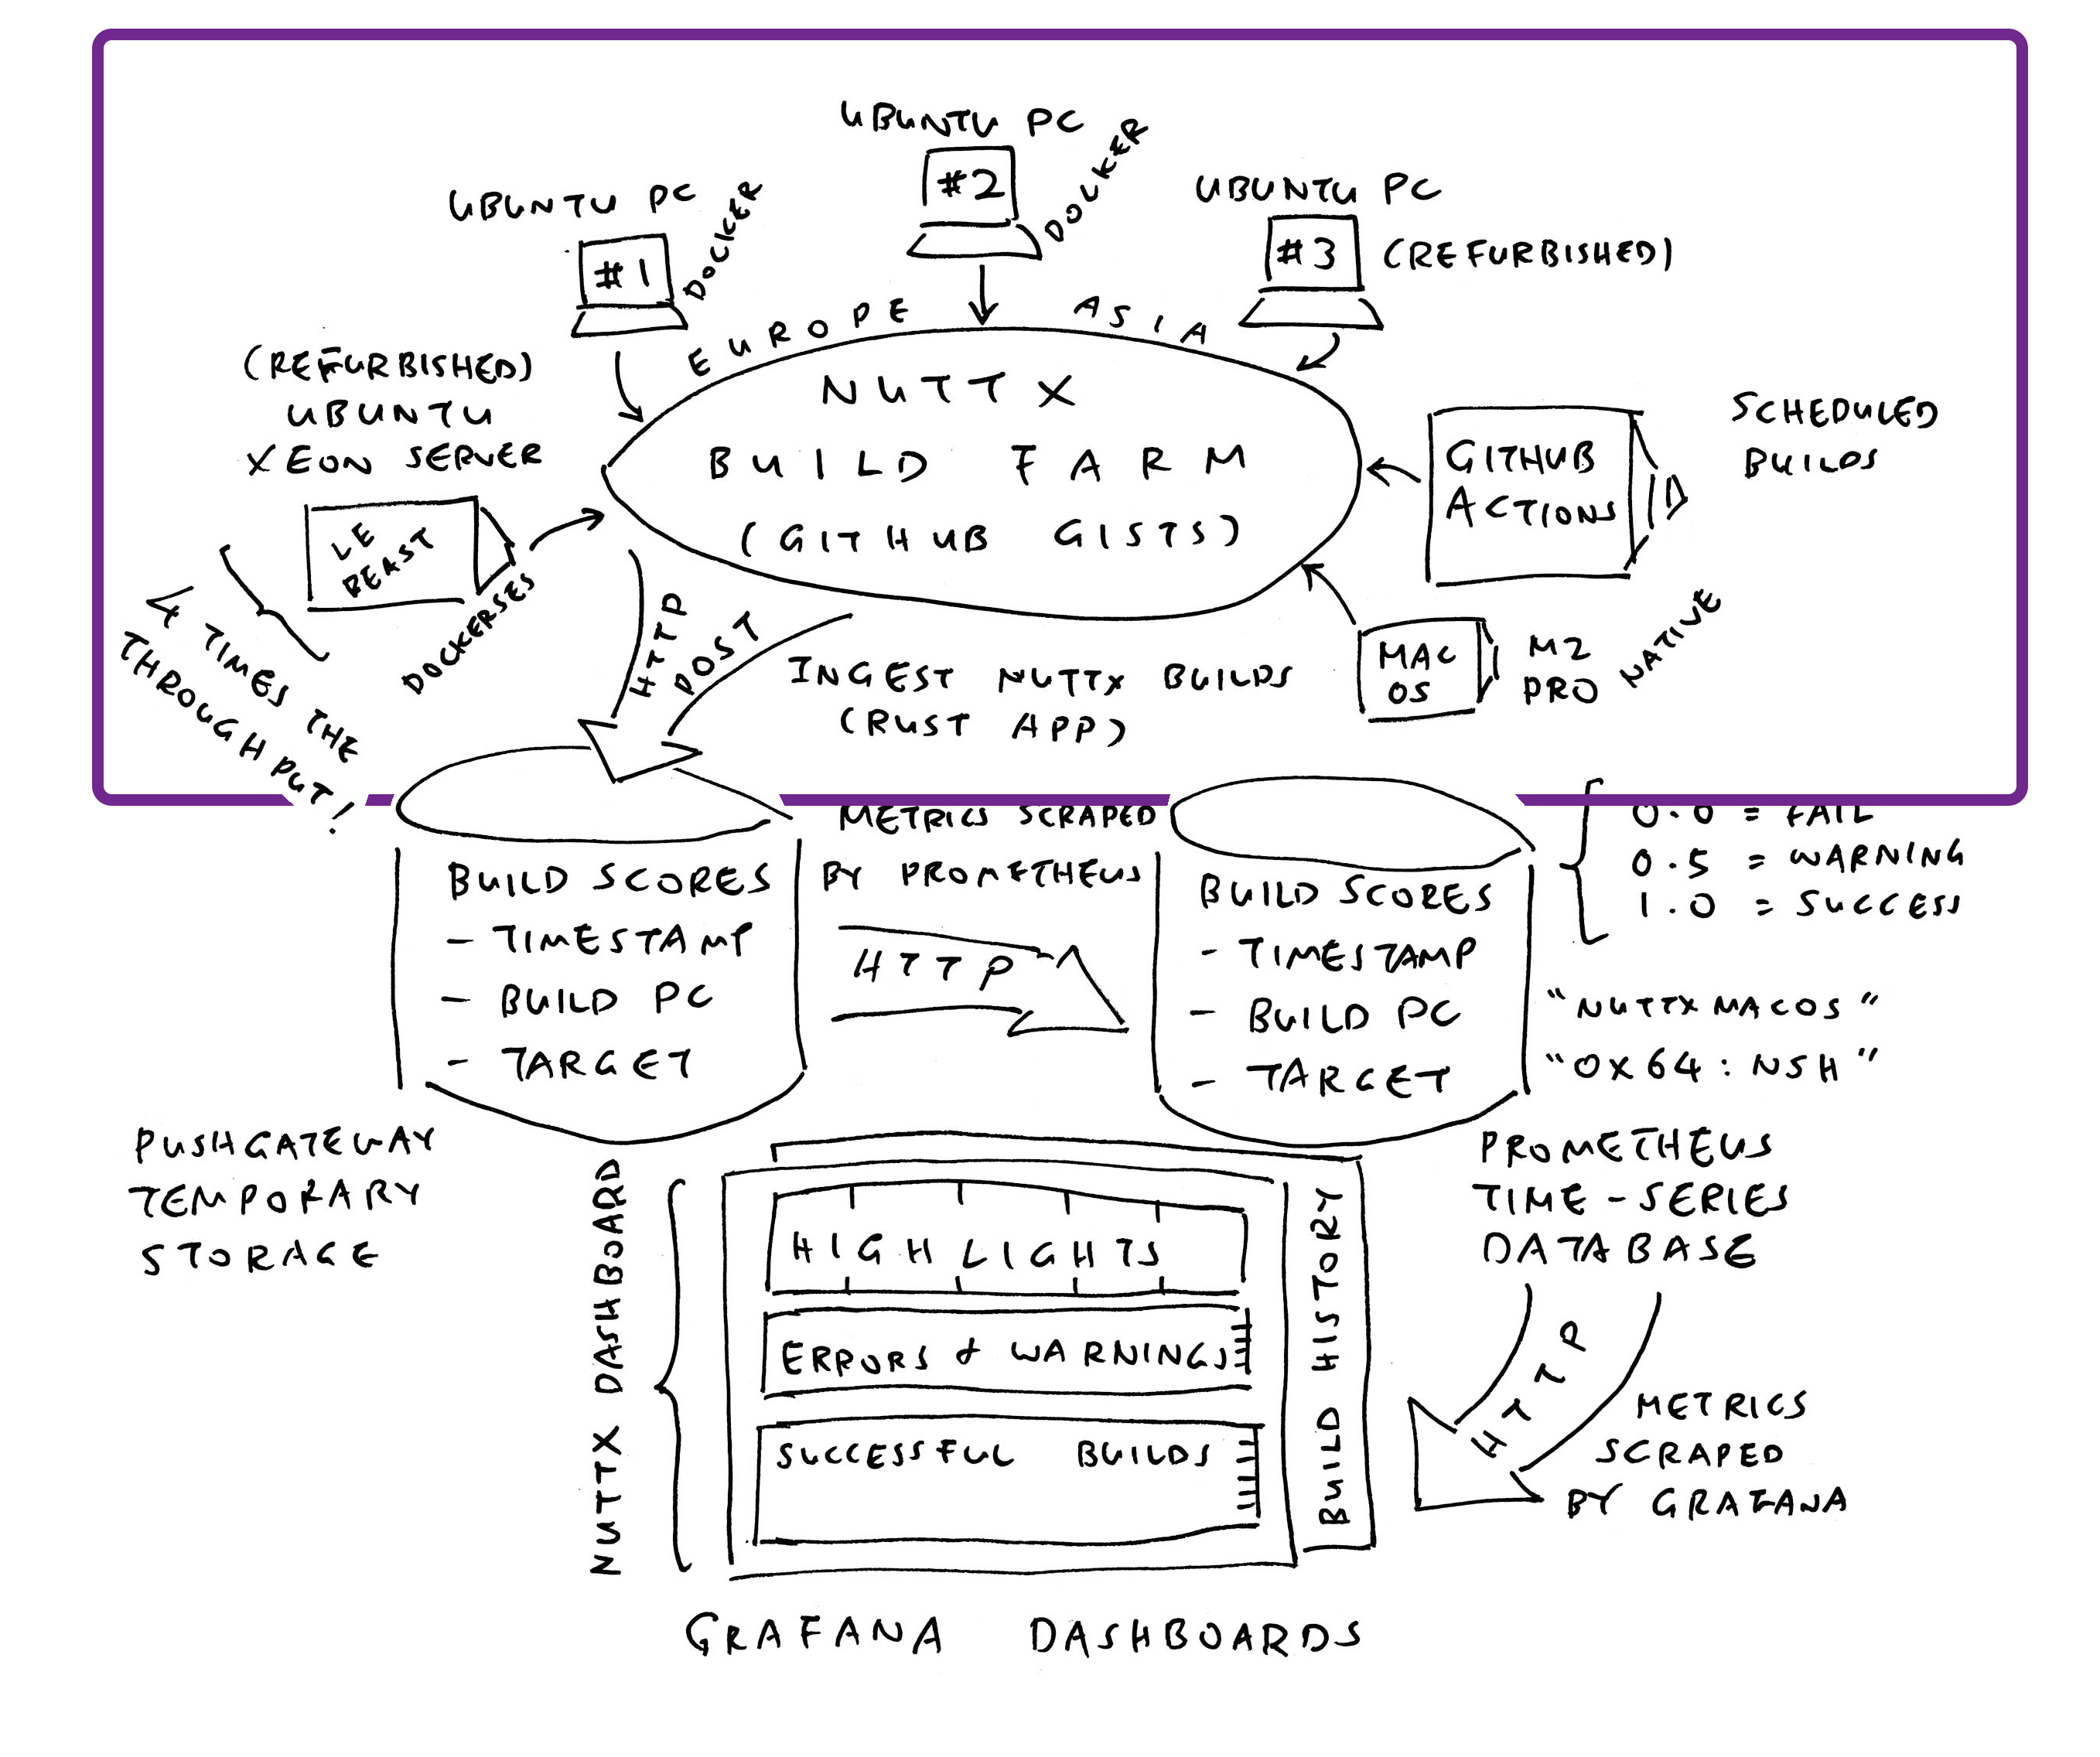 UBUNTU PC
#2
DOCKER
UBUNTU PC
#1
DOCKER
UBUNTU PC
#3
(REFURBISHED)
EUROPE
ASIA
(REFURBISHED)
UBUNTU
XEON SERVER
LE
BEAST
DOCKERSES
4 TIMES THE
THROUGHPUT!
NUTTX
BUILD FARM
(GITHUB GISTS)
GITHUB
ACTIONS
SCHEDULED
BUILDS
MAC
OS
M2
PRO
NATIVE
HTTP
POST
INGEST NUTTX BUILDS
(RUST APP)
METRICS SCRAPED
BY PROMETHEUS
HTTP
BUILD SCORES
- TIMESTAMP
- BUILD PC
- TARGET
BUILD SCORES
- TIMESTAMP
- BUILD PC
- TARGET
0.0 = FAIL
0.5 = WARNING
1.0 = SUCCESS
"NUTTXMACOS"
"OX64:NSH"
PUSHGATEWAY
TEMPORARY
STORAGE
PROMETHEUS
TIME-SERIES
DATABASE
HTTP
METRICS
SCRAPED
BY GRAFANA
NUTTX DASHBOARD
HIGHLIGHTS
ERRORS & WARNINGS
SUCCESSFUL BUILDS
BUILD HISTORY
GRAFANA DASHBOARDS